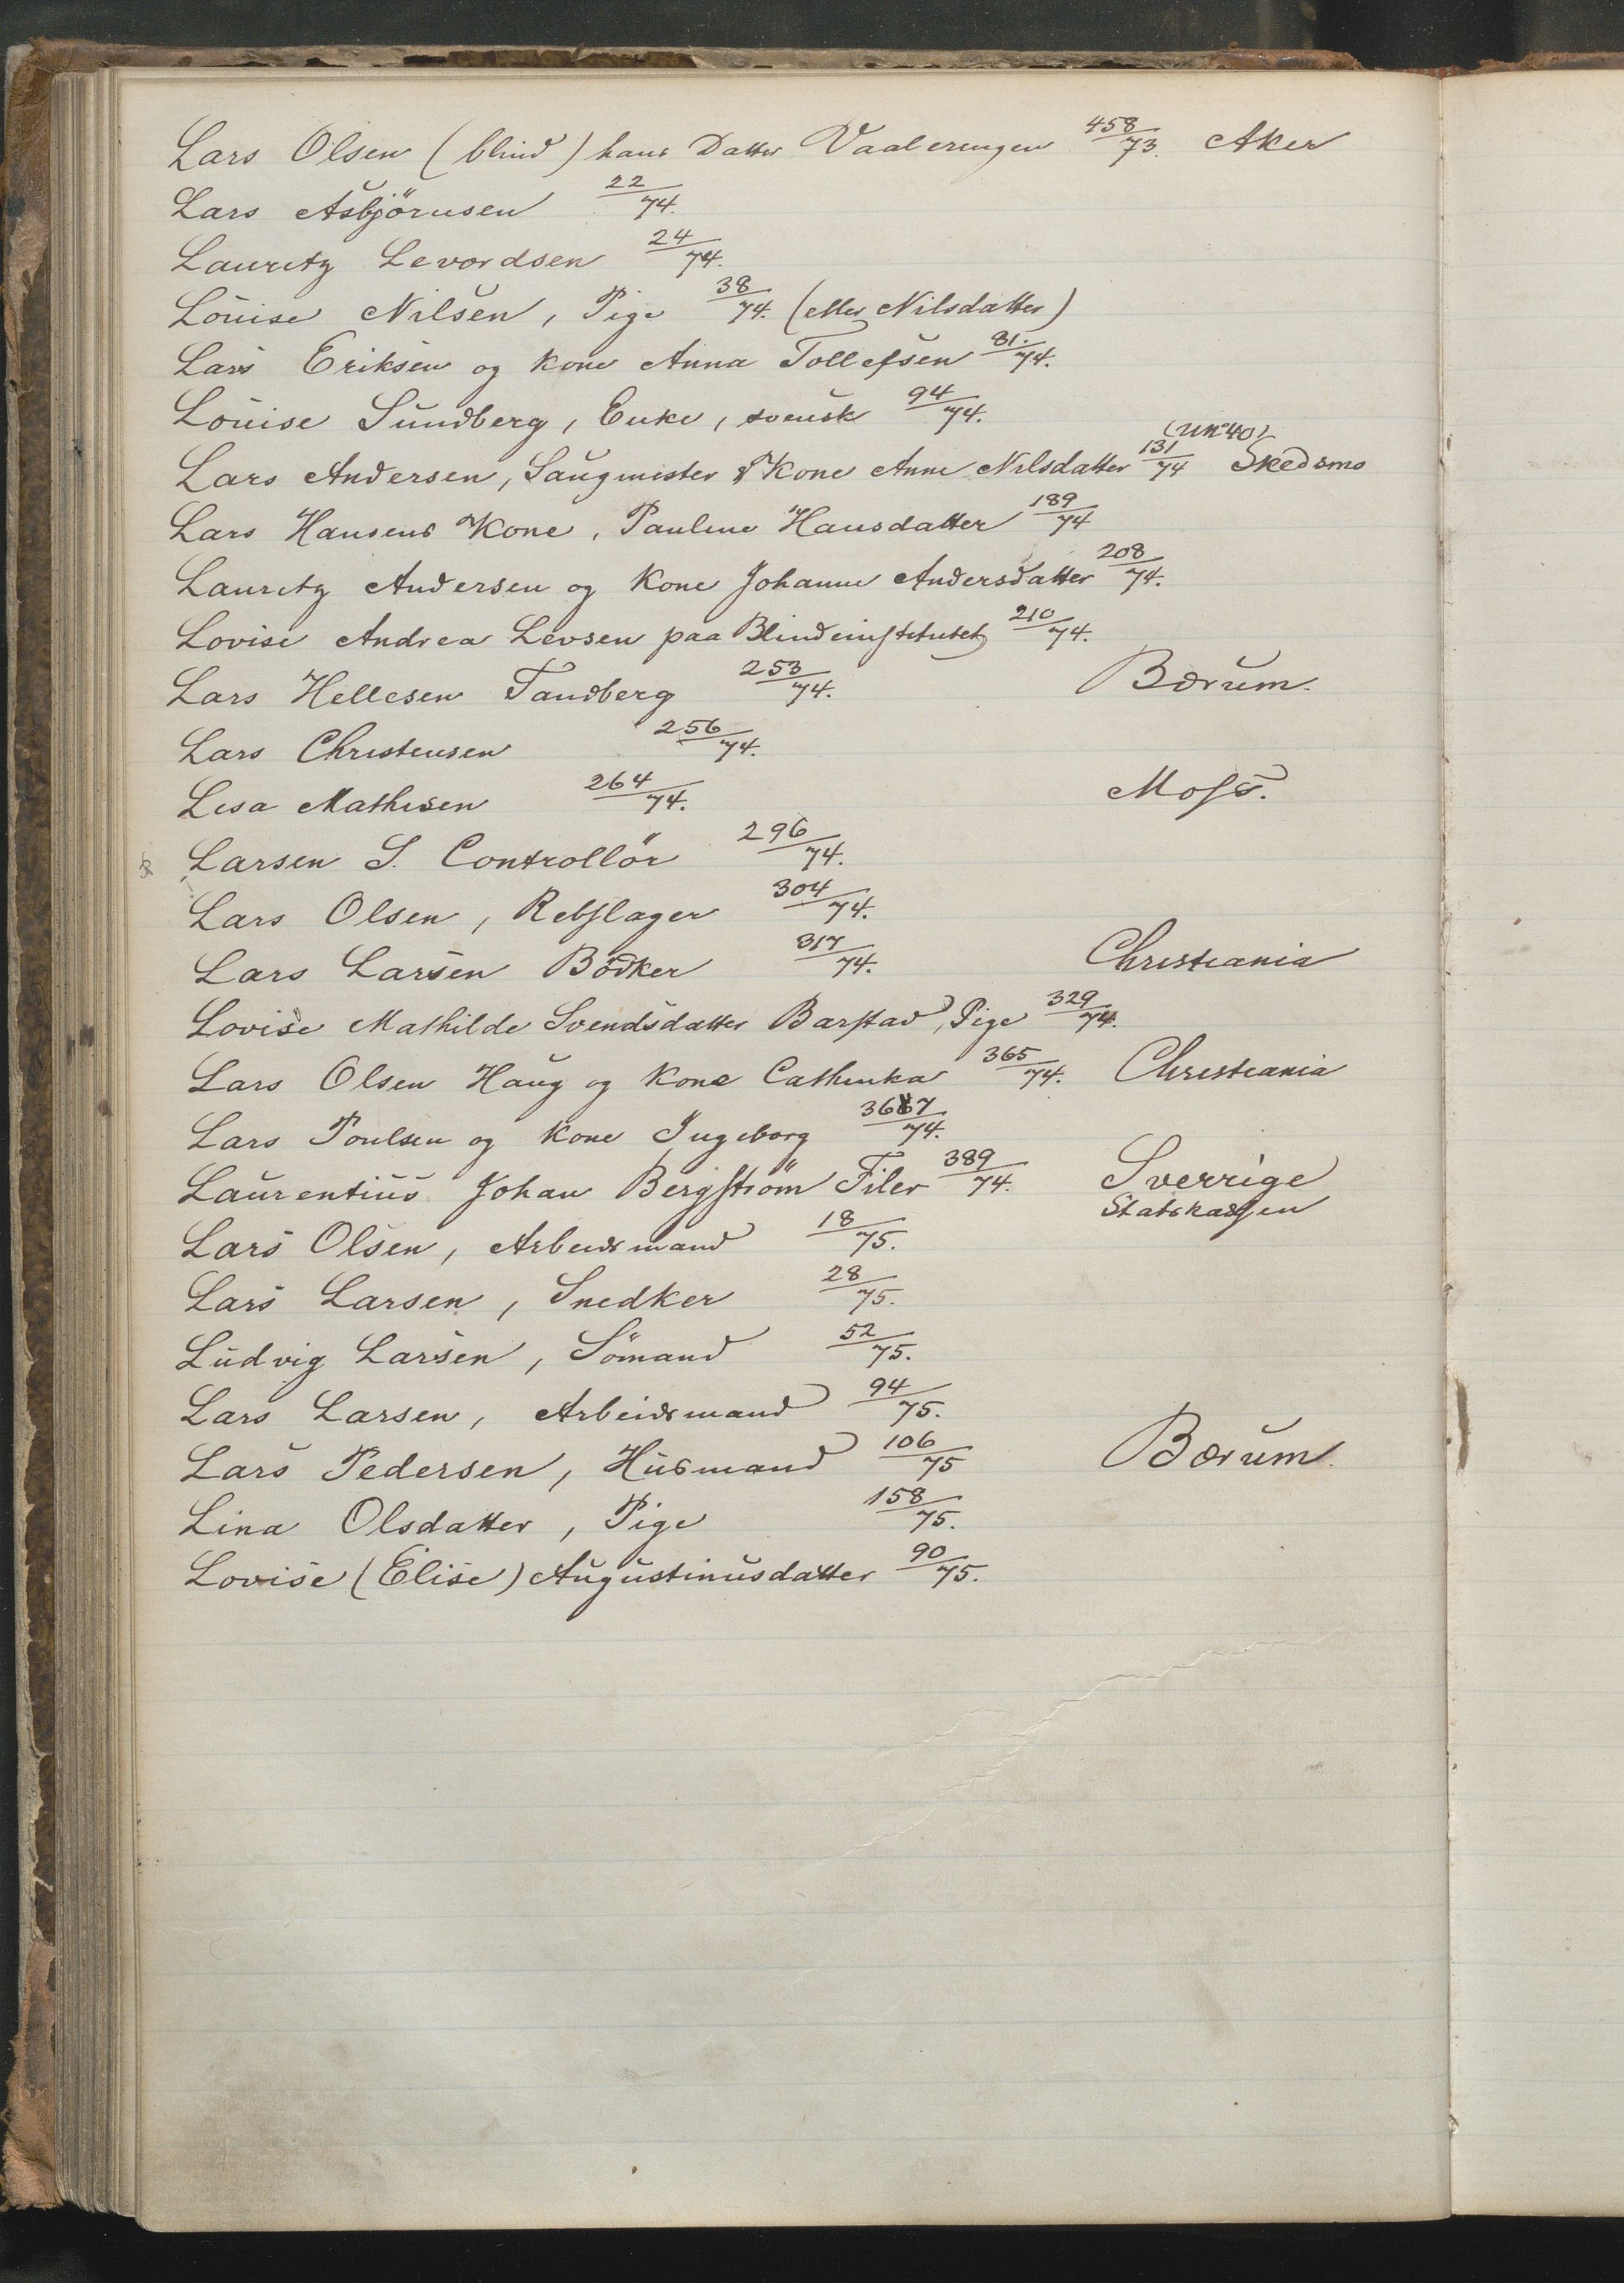 Lars Olsen (blind) hans Datter Vaalerengen 458/73. Aker
Lars Asbjörnsen 22/74.
Lauritz Levordsen 24/74.
Louise Nilsen, Pige 38/74. (eller Nilsdatter)
Lars Eriksen og Kone Anna Tollefsen 81/74.
Louise Sundberg, Enke, svensk 94/74.
Lars Andersen, Saugmester & Kone Anne Nilsdatter 131/74 Skedsmo
Lars Hansens Kone, Pauline Hansdatter 189/74
Lauritz Andersen og Kone Johanne Andersdatter 208/74.
Lovise Andrea Levsen paa Blindeinstitutet 210/74.
Lars Hellesen Tandberg 253/74. Bærum.
Lars Christensen 256/74.
Lisa Mathisen 264/74. Moss.
Larsen S. Controllör 296/74.
Lars Olsen, Rebslager 304/74.
Lars Larsen Bödker 317/74. Christiania
Lovise Mathilde Svendsdatter Barstad, Pige 329/74.
Lars Olsen Haug og Kone Cathinka 365/74. Christiania
Lars Poulsen og Kone Ingeborg 367/74.
Laurentius Johan Bergström Filer 389/74. Sverrige
Statskassen
Lars Olsen, Arbeidsmand 18/75.
Lars Larsen, Snedker 28/75.
Ludvig Larsen, Sömand 52/75.
Lars Larsen, Arbeidsmand 94/75.
Lars Pedersen, Husmand 106/75 Bærum.
Lina Olsdatter, Pige 158/75.
Lovise (Elise) Augustinusdatter 90/75.